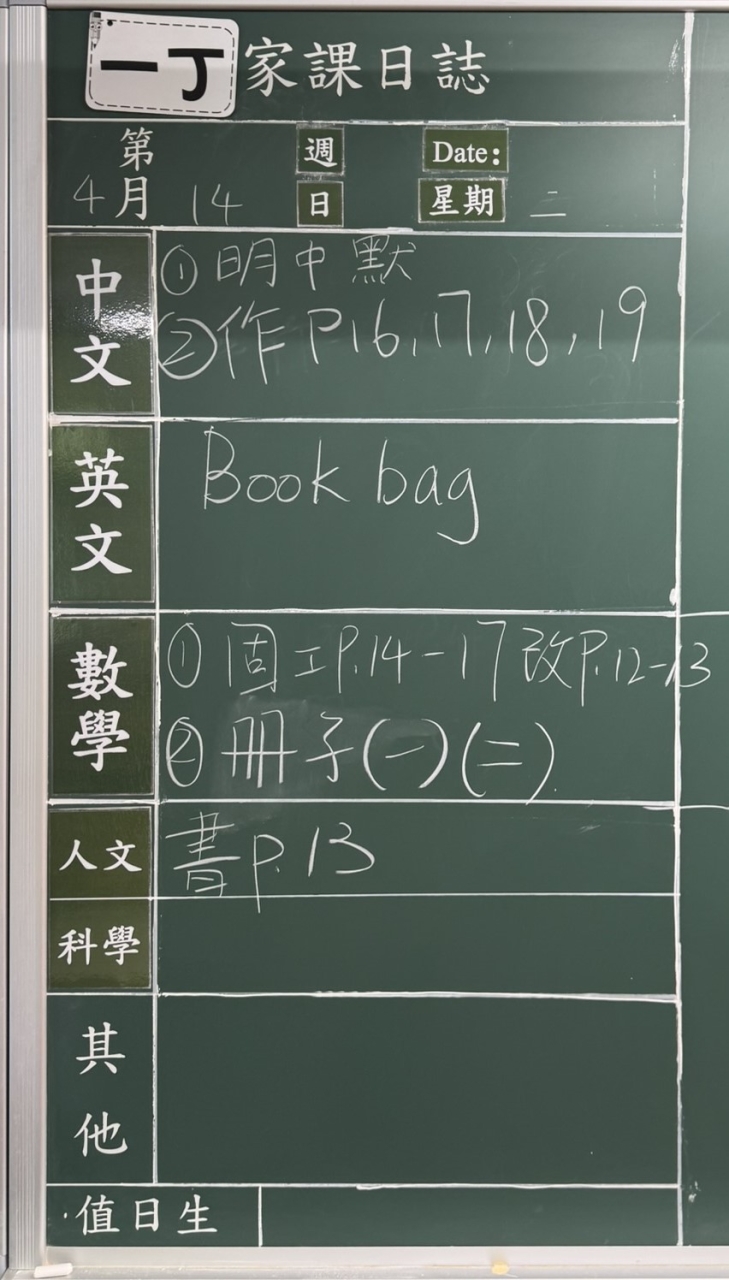 一丁 家課日誌
第 週 Date:
4月 14 日 星期 二
中文
① 明中默
② 作 P16, 17, 18, 19
英文
Book bag
數學
① 固工P.14-17 改P.12-13
② 冊子(一)(二)
人文
書P.13
科學
其他
值日生